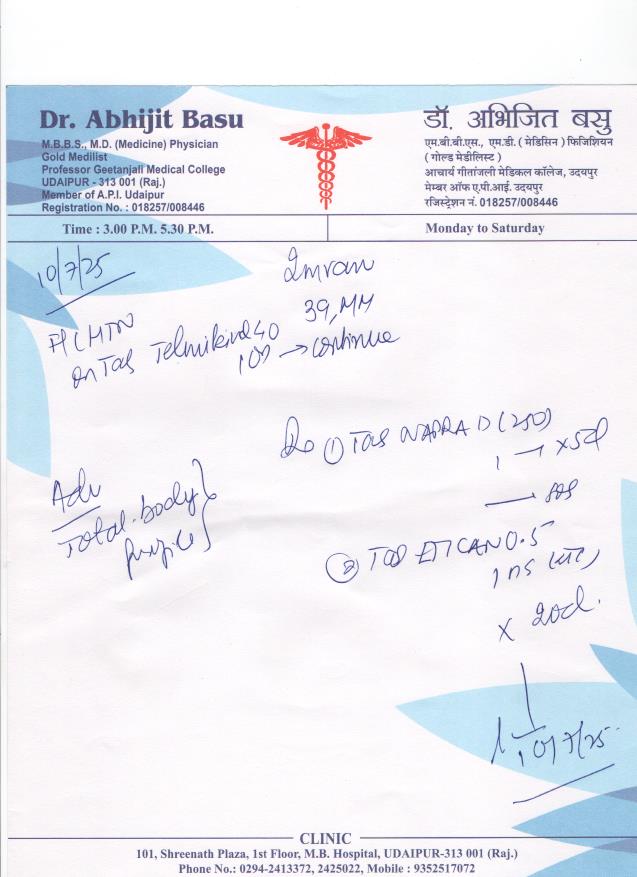 Dr. Abhijit Basu
M.B.B.S., M.D. (Medicine) Physician
Gold Medilist
Professor Geetanjali Medical College
UDAIPUR - 313 001 (Raj.)
Member of A.P.I. Udaipur
Registration No. : 018257/008446
डॉ. अभिजित बसु
एम.बी.बी.एस., एम.डी. ( मेडिसिन ) फिजिशियन
( गोल्ड मेडीलिस्ट )
आचार्य गीतांजली मेडिकल कॉलेज, उदयपुर
मेम्बर ऑफ ए.पी.आई. उदयपुर
रजिस्ट्रेशन नं. 018257/008446
Time : 3.00 P.M. 5.30 P.M.
Monday to Saturday
10/7/25
Imran
39,
HTN
on Tab Telmikind 40
1 OD → continue
Rx ① Tab NAPRA D (250)
1 → x 5d
Adv
Total body
profile
② Tab ETICAN 0.5
x 20d.
10/7/25
CLINIC
101, Shreenath Plaza, 1st Floor, M.B. Hospital, UDAIPUR-313 001 (Raj.)
Phone No.: 0294-2413372, 2425022, Mobile : 9352517072